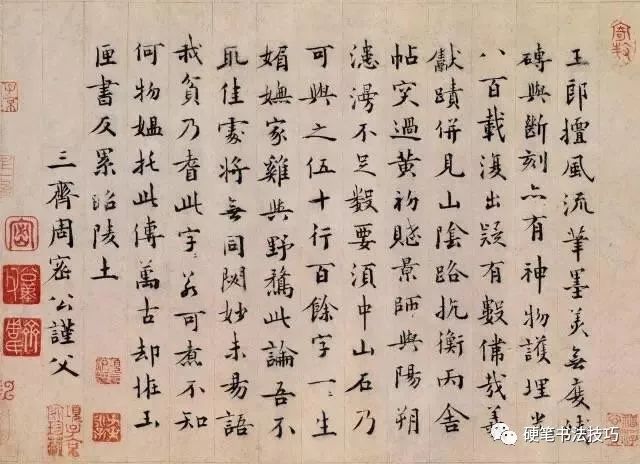 王郎擅風流筆墨美無度
磚與斷刻亦有神物護埋
八百載復出疑有數儔哉羲
獻蹟併見山陰路抗衡兩舍
帖突過黃初賦景師與陽朔
漶漫不足數要須中山石乃
可與之伍十行百餘字一一生
媚嫵家雞與野鶩此論吾不
取佳處將無同閟妙未易語
我貧乃耆此字字若可煮不知
何物媼托此傳萬古却
匣書反累昭陵土
三齊周密公謹父
硬笔书法技巧